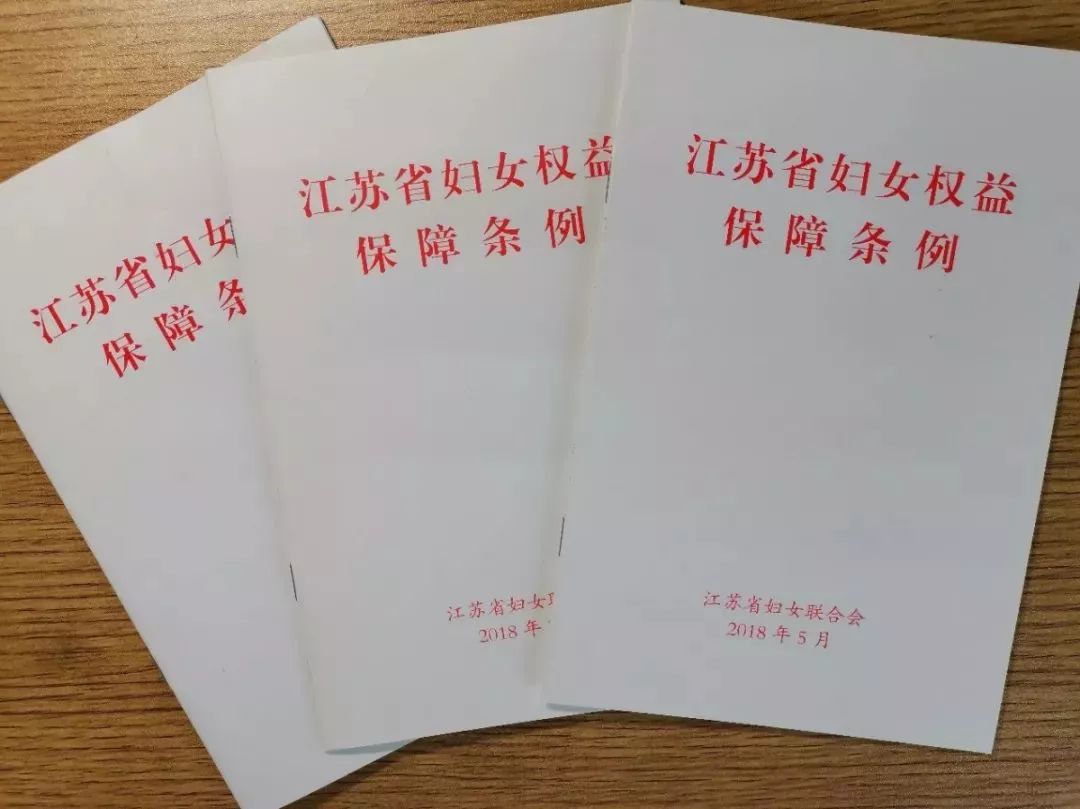 江苏省妇女
保障条
江苏省妇女权益
保障条例
江苏省妇女
2018 年
江苏省妇女权益
保障条例
江苏省妇女联合会
2018 年 5 月